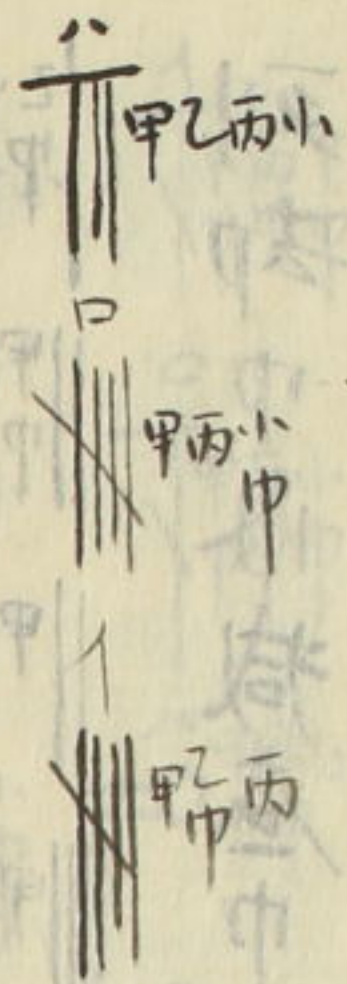 ハ
甲乙丙小
ロ
甲丙小巾
イ
甲乙巾丙